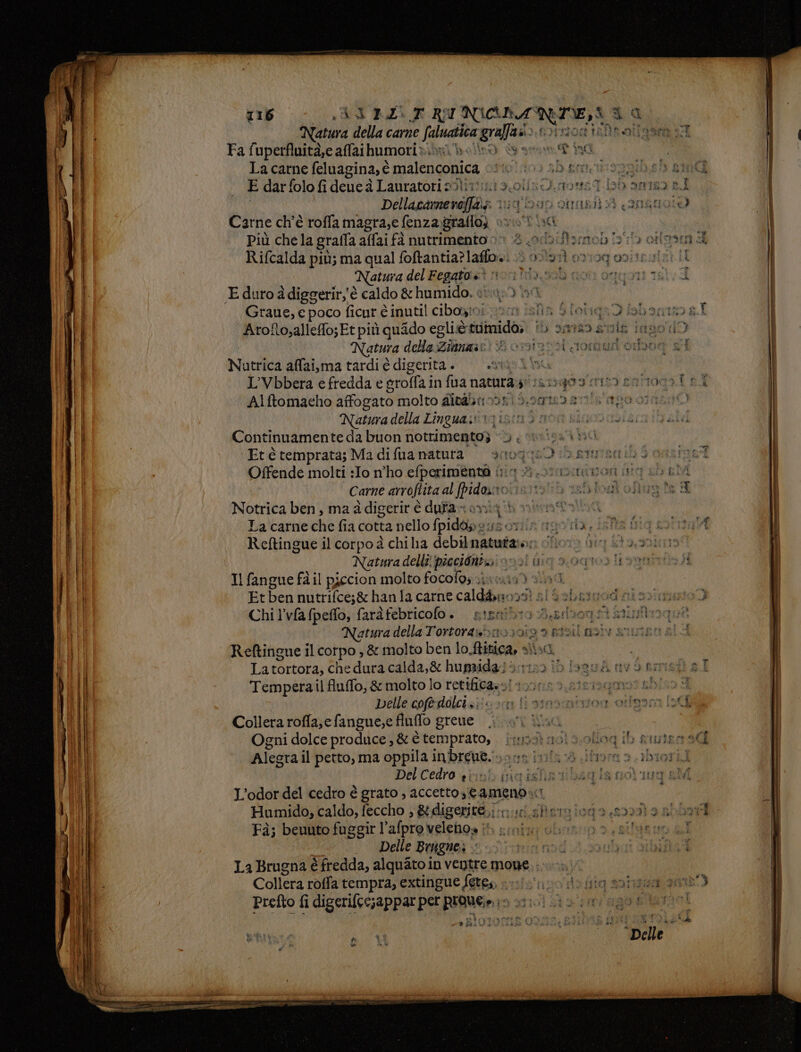 116
Natura della carne saluatica grassa.
Fa superfluità, e assai humori
La carne seluagina, è malenconica
E dar solo si deue à Lauratori
Della carne rossa.
Carne ch'è rossa magra, e senza grasso,
Più che la grassa assai fà nutrimento
Rifcalda più; ma qual sostantia? lasso.
Natura del Fegato.
E duro à diggerir, è caldo & humido.
Graue, e poco sicur è inutil cibo,
Arosto, allesso; Et più quãdo egli è tumido.
Natura della Zinna.
Nutrica assai, ma tardi è digerita.
L'Vbbera e fredda e grossa in sua natura,
Al stomacho affogato molto aita.
Natura della Lingua.
Continuamente da buon notrimento,
Et è temprata; Ma di sua natura
Offende molti : Io n'ho esperimento
Carne arrostita al spido.
Notrica ben, ma à digerir è dura
La carne che sia cotta nello spido,
Restingue il corpo à chi ha debil natura.
Natura delli piccioni.
Il sangue fà il piccion molto focoso,
Et ben nutrisce; & han la carne calda,
Chi l'vsa spesso, farà febricoso.
Natura della Tortora.
Restingue il corpo, & molto ben lo stitica,
La tortora, che dura calda, & humida
Tempera il flusso, & molto lo retifica.
Delle cose dolci.
Collera rossa, e sangue, e flusso greue
Ogni dolce produce, & è temprato,
Alegra il petto, ma oppila in breue.
Del Cedro
L'odor del cedro è grato, accetto, e ameno
Humido, caldo, seccho, & digerite,
Fà; beuuto fuggir l'aspro veleno.
Delle Brugne.
La Brugna è fredda, alquãto in ventre moue
Collera rossa tempra, extingue sete,
Presto si digerisce; appar per proue,
Delle